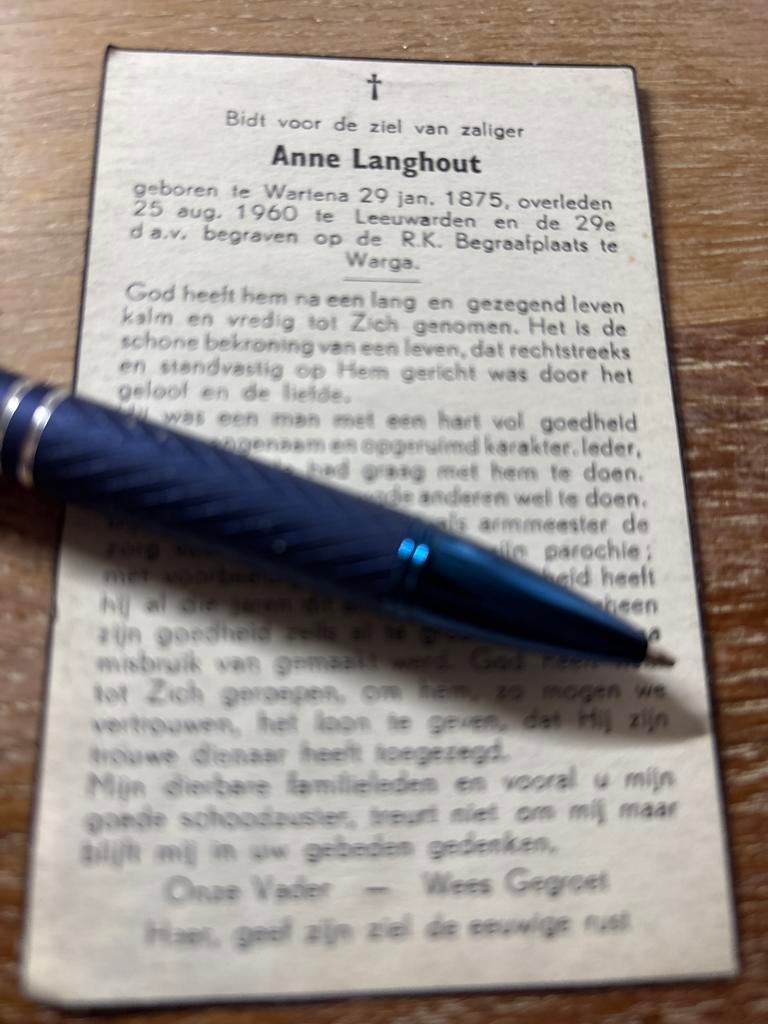 Bidt voor de ziel van zaliger
Anne Langhout
geboren te Wartena 29 jan. 1875, overleden
25 aug. 1960 te Leeuwarden en de 29e
d a.v. begraven op de R.K. Begraafplaats te
Warga.
God heeft hem na een lang en gezegend leven
kalm en vredig tot Zich genomen. Het is de
schone bekroning van een leven, dat rechtstreeks
en standvastig op Hem gericht was door het
geloof en de liefde.
was een man met een hart vol goedheid
en opgeruimd karakter. Ieder,
had graag met hem te doen.
anderen wel te doen.
als armmeester de
zorg parochie;
met heeft
hij al die jaren
zijn goedheid zelfs al te
misbruik van gemaakt werd. God heeft
tot Zich geroepen, om hem, zo mogen we
vertrouwen, het loon te geven, dat Hij zijn
trouwe dienaar heeft toegezegd.
Mijn dierbare familieleden en vooral u mijn
goede schoonzuster, treurt niet om mij maar
blijft mij in uw gebeden gedenken.
Onze Vader — Wees Gegroet
Heer, geef zijn ziel de eeuwige rust